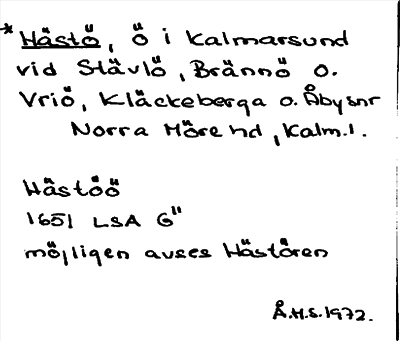 * Hästö, ö i Kalmarsund
vid Stävlö, Brännö o.
Vriö, Kläckeberga o. Åbysnr
Norra Möre hd, Kalm.l.
Hästöö
1651 LSA G"
möjligen avses Hästören
Å.H.S. 1972.